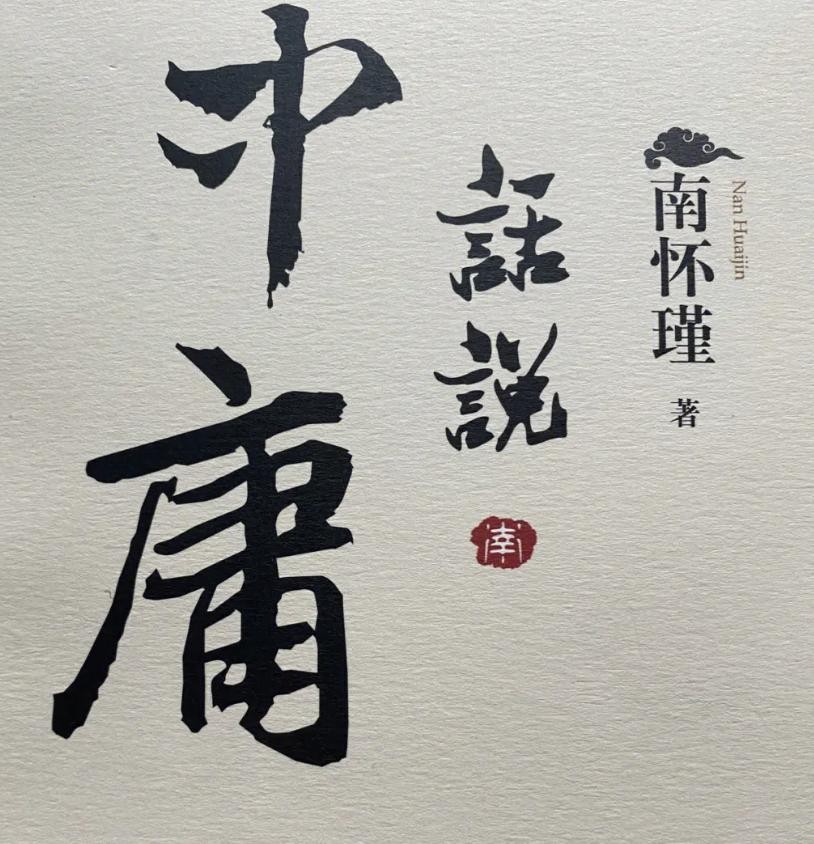 南怀瑾 著
Nan Huaijin
話說
中庸
南